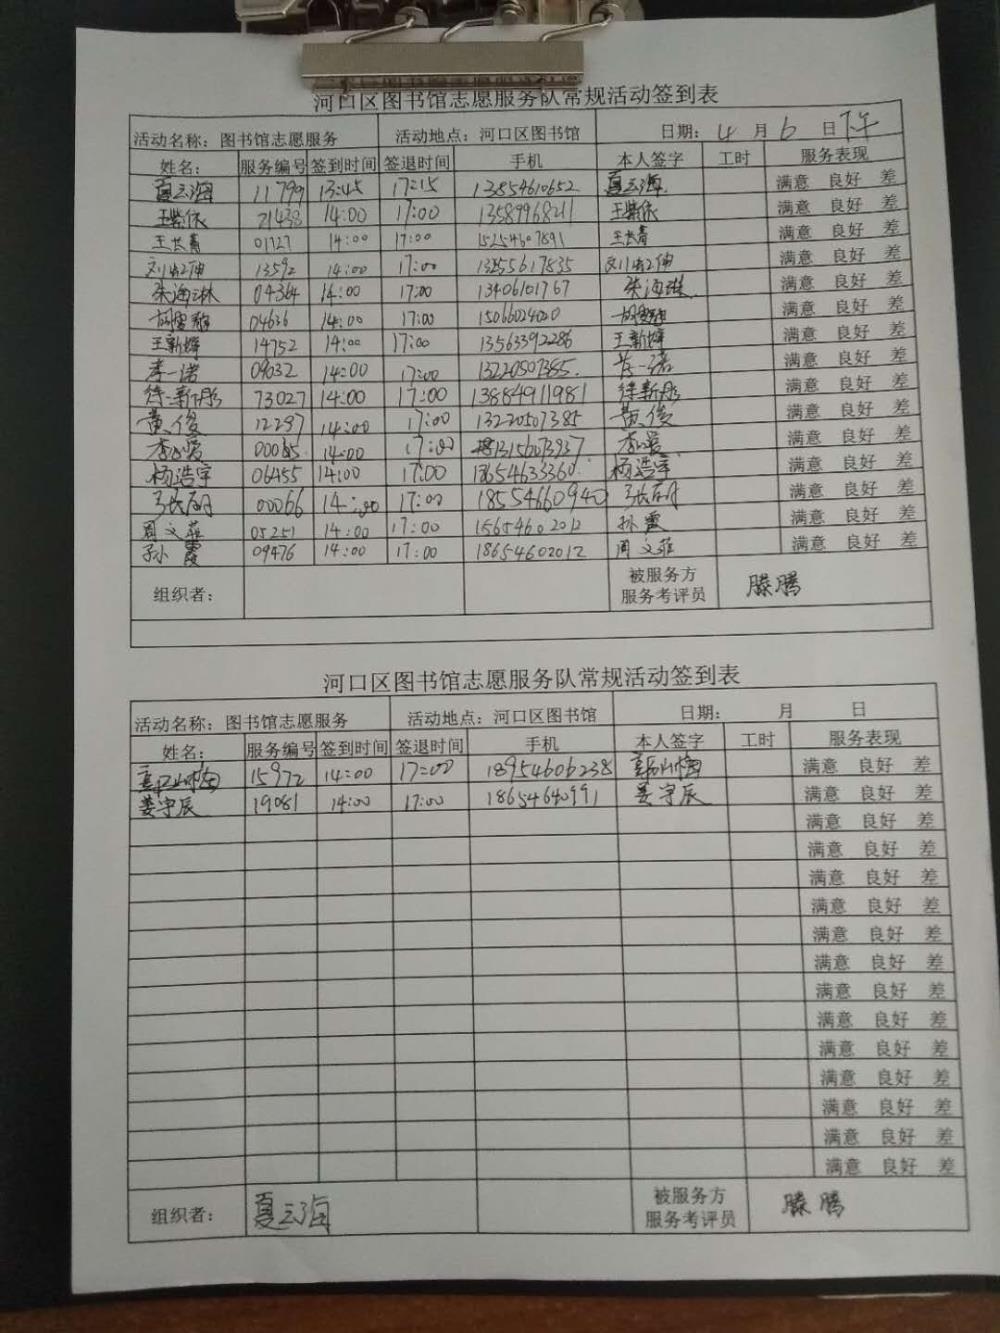 河口区图书馆志愿服务队常规活动签到表
活动名称：图书馆志愿服务 活动地点：河口区图书馆 日期： 4 月 6 日 下午
姓名： 服务编号 签到时间 签退时间 手机 本人签字 工时 服务表现
夏云海 11799 13:45 17:15 13854610652 夏云海 满意 良好 差
王紫依 21438 14:00 17:00 13589968211 王紫依 满意 良好 差
王长青 01727 14:00 17:00 15254607891 王长青 满意 良好 差
13592 14:00 17:00 13255617835 满意 良好 差
朱海琳 04364 14:00 17:00 13406101767 朱海琳 满意 良好 差
04636 14:00 17:00 15066024020 满意 良好 差
王新婷 14752 14:00 17:00 13563392286 王新婷 满意 良好 差
李一诺 09032 14:00 17:00 13220507385. 李一诺 满意 良好 差
徐新彤 73027 14:00 17:00 13884911981 徐新彤 满意 良好 差
黄俊 12297 14:00 17:00 13220507385 黄俊 满意 良好 差
00085 14:00 17:00 13156073937 满意 良好 差
杨浩宇 06455 14:00 17:00 18654633360 杨浩宇 满意 良好 差
00066 14:00 17:00 18554660940 满意 良好 差
周文菲 05251 14:00 17:00 15654602012 孙霞 满意 良好 差
孙霞 09476 14:00 17:00 18654602012 周文菲 满意 良好 差
组织者： 被服务方 服务考评员 滕腾
河口区图书馆志愿服务队常规活动签到表
活动名称：图书馆志愿服务 活动地点：河口区图书馆 日期： 月 日
姓名： 服务编号 签到时间 签退时间 手机 本人签字 工时 服务表现
15972 14:00 17:00 18954606238 满意 良好 差
姜宇辰 19081 14:00 17:00 18654640991 姜宇辰 满意 良好 差
满意 良好 差
满意 良好 差
满意 良好 差
满意 良好 差
满意 良好 差
满意 良好 差
满意 良好 差
满意 良好 差
满意 良好 差
满意 良好 差
满意 良好 差
满意 良好 差
满意 良好 差
组织者： 夏云海 被服务方 服务考评员 滕腾